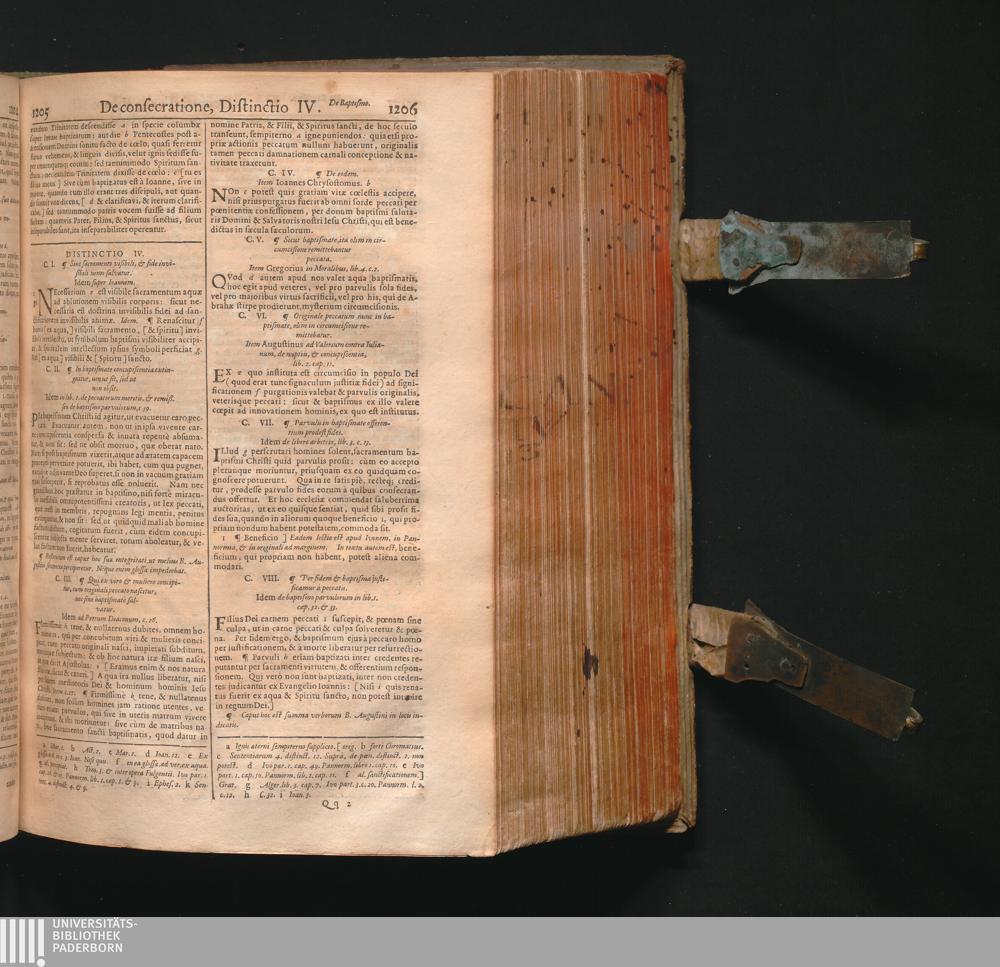 1205 De consecratione, Distinctio IV. De Baptismo. 1206
Trinitatem descendisse a in specie columbæ
super Iesum baptizatum: aut die b Pentecostes post a-
scensionem Domini sonitu facto de cœlo, quasi ferretur
flatus vehemens, & linguis divisis, velut ignis sedisse su-
sed tantummodo Spiritum san-
Trinitatem dixisse de cœlo: c [tu es
filius meus] Sive cum baptizatus est à Ioanne, sive in
monte, quando cum illo erant tres discipuli, aut quan-
[d & clarificavi, & iterum clarifi-
cabo,] sed tantummodo patris vocem fuisse ad filium
factam: quamvis Pater, Filius, & Spiritus sanctus, sicut
inseparabiles sunt, ita inseparabiliter operentur.
DISTINCTIO IV.
C. I. ¶ Sine sacramento visibili, & fide invi-
sibili nemo salvatur.
Idem super Ioannem.
NEcessarium e est visibile sacramentum aquæ
ad ablutionem visibilis corporis: sicut ne-
cessaria est doctrina invisibilis fidei ad san-
ctificationem invisibilis animæ. Idem. ¶ Renascitur f
homo [ex aqua,] visibili sacramento, [& spiritu] invi-
sibili intellectu, ut symbolum baptismi visibiliter accipi-
at, & spiritalem intellectum ipsius symboli perficiat g
[ex aqua] visibili & [Spiritu] sancto.
C. II. ¶ In baptismate concupiscentia extin-
guitur, non ut sit, sed ut
non obsit.
Idem in lib. 1. de peccatorum meritis, & remiss.
seu de baptismo parvulorum, c. 39.
PEr baptismum Christi id agitur, ut evacuetur caro pec-
cati. Evacuatur autem, non ut in ipsa vivente car-
ne concupiscentia conspersa & innata repente absuma-
tur, & non sit: sed ne obsit mortuo, quæ oberat nato.
Nam si post baptismum vixerit, atque ad ætatem capacem
præcepti pervenire potuerit, ibi habet, cum qua pugnet,
eamque adjuvante Deo superet, si non in vacuum gratiam
eius susceperit, si reprobatus esse noluerit. Nam nec
grandibus hoc præstatur in baptismo, nisi fortè miracu-
lo ineffabili omnipotentissimi creatoris, ut lex peccati,
quæ inest in membris, repugnans legi mentis, penitus
extinguatur, & non sit: sed, ut quidquid mali ab homine
factum, dictum, cogitatum fuerit, cùm eidem concupi-
scentiæ subjecta mente serviret, totum aboleatur, & ve-
lut factum non fuerit, habeatur.
¶ Restitutum est caput hoc suæ integritati, ut melius B. Au-
gustini sententia perciperetur. Neque enim glossæ impediebat.
C. III. ¶ Qui ex viro & muliere concipi-
tur, cum originali peccato nascitur,
nec sine baptismate sal-
vatur.
Idem ad Petrum Diaconum, c. 26.
FIrmissimè h tene, & nullatenus dubites, omnem ho-
minem, qui per concubitum viri & mulieris conci-
pitur, cum peccato originali nasci, impietati subditum,
mortique subjectum: & ob hoc natura iræ filium nasci,
de qua dicit Apostolus: i [Eramus enim & nos natura
filii iræ, sicut & ceteri.] A qua ira nullus liberatur, nisi
per fidem mediatoris Dei & hominum hominis Iesu
Christi. Item c. 27. ¶ Firmissimè k tene, & nullatenus
dubites, non solum homines jam ratione utentes, ve-
rum etiam parvulos, qui sive in uteris matrum vivere
incipiunt, & ibi moriuntur: sive cùm de matribus na-
ti, sine sacramento sancti baptismatis, quod datur in
a Mar. 1. b Act. 2. c Mar. 1. d Ioan. 12. e Ex
f in ea glossa, ad ver. ex aqua.
h Theo. 3. & inter opera Fulgentii. Ivo par. 1.
Pannorm. lib. 1. cap. 1. & 3. i Ephes. 2. k Sen-
tent. 4. distinct. 4. & 9.
nomine Patris, & Filii, & Spiritus sancti, de hoc seculo
transeunt, sempiterno a igne puniendos: quia etsi pro-
priæ actionis peccatum nullum habuerunt, originalis
tamen peccati damnationem carnali conceptione & na-
tivitate traxerunt.
C. IV. ¶ De eodem.
Item Ioannes Chrysostomus. b
NOn c potest quis gratiam vitæ cœlestis accipere,
nisi prius purgatus fuerit ab omni sorde peccati per
pœnitentiæ confessionem, per donum baptismi saluta-
ris Domini & Salvatoris nostri Iesu Christi, qui est bene-
dictus in sæcula sæculorum.
C. V. ¶ Sicut baptismate, ita olim in cir-
cumcisione remittebantur
peccata.
Item Gregorius in Moralibus, lib. 4. c. 2.
QVod d autem apud nos valet aqua baptismatis,
hoc egit apud veteres, vel pro parvulis sola fides,
vel pro majoribus virtus sacrificii, vel pro his, qui de A-
brahæ stirpe prodierunt, mysterium circumcisionis.
C. VI. ¶ Originale peccatum nunc in ba-
ptismate, olim in circumcisione re-
mittebatur.
Item Augustinus ad Valerium contra Iulia-
num, de nuptiis, & concupiscentia,
lib. 2. cap. 11.
EX e quo instituta est circumcisio in populo Dei
(quod erat tunc signaculum justitiæ fidei) ad signi-
ficationem f purgationis valebat & parvulis originalis,
veterisque peccati: sicut & baptismus ex illo valere
cœpit ad innovationem hominis, ex quo est institutus.
C. VII. ¶ Parvulis in baptismate offeren-
tium prodest fides.
Idem de libero arbitrio, lib. 3. c. 23.
ILlud g perscrutari homines solent, sacramentum ba-
ptismi Christi quid parvulis prosit: cùm eo accepto
plerunque moriuntur, priusquam ex eo quidquam co-
gnoscere potuerunt. Qua in re satis piè, rectèq; credi-
tur, prodesse parvulo fides eorum à quibus consecran-
dus offertur. Et hoc ecclesiæ commendat saluberrima
auctoritas, ut ex eo quisque sentiat, quid sibi prosit fi-
des sua, quando in aliorum quoque beneficio 1, qui pro-
priam nondum habent potestatem, commoda sit.
1 ¶ Beneficio ] Eadem lectio est apud Ivonem, in Pan-
normia, & in originali ad marginem. In textu autem est, bene-
ficium, qui propriam non habent, potest aliena com-
modari.
C. VIII. ¶ Per fidem & baptisma justi-
ficamur à peccatis.
Idem de baptismo parvulorum in lib. 1.
cap. 32. & 33.
FIlius Dei carnem peccati 1 suscepit, & pœnam sine
culpa, ut in carne peccati & culpa solveretur & pœ-
na. Per fidem ergo, & baptismum ejus à peccato homo
per justificationem, & à morte liberatur per resurrectio-
nem. ¶ Parvuli b etiam baptizati inter credentes re-
putantur per sacramenti virtutem, & offerentium respon-
sionem. Qui verò non sunt baptizati, inter non creden-
tes judicantur ex Evangelio Ioannis: [Nisi i quis rena-
tus fuerit ex aqua & Spiritu sancto, non potest introire
in regnum Dei.]
¶ Caput hoc est summa verborum B. Augustini in locis in-
dicatis.
a Ignis æterni sempiterno supplicio. [orig. b fortè Chromatius.
c Sententiarum 4. distinct. 12. Supra, de pœn. distinct. 1. non
potest. d Ivo par. 1. cap. 49. Pannorm. libro 1. cap. 12. e Ivo
part. 1. cap. 50. Pannorm. lib. 1. cap. 11. f al. sanctificationem.]
Grat. g Alger. lib. 3. cap. 7. Ivo part. 3. c. 20. Pannorm. l. 2,
c. 12. h C. 32. i Ioan. 3.
Qq 2
UNIVERSITÄTS-
BIBLIOTHEK
PADERBORN